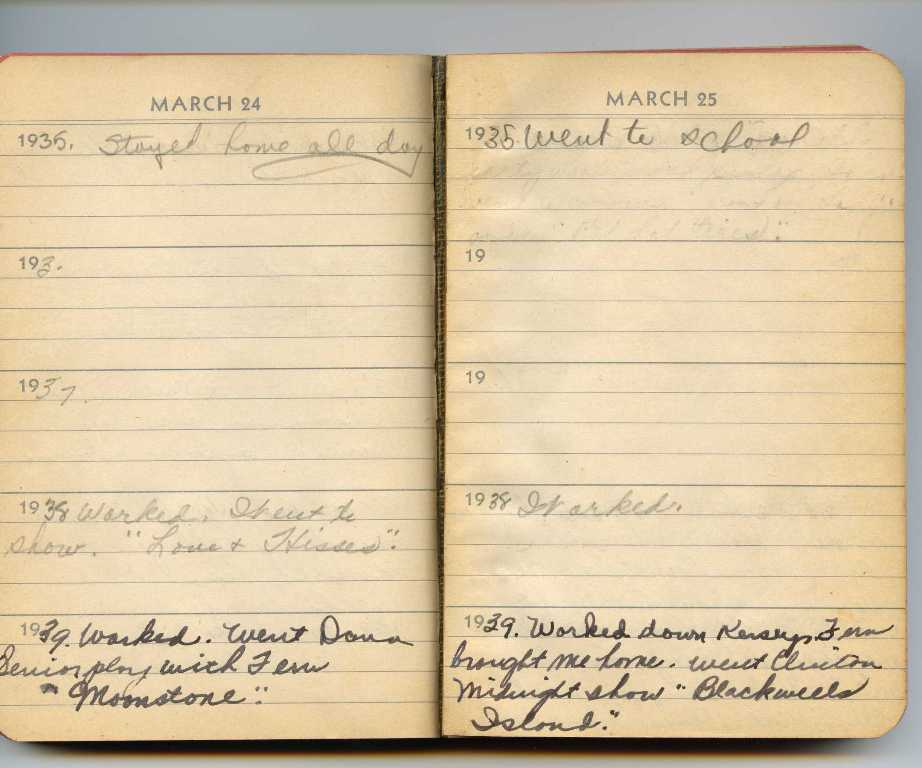 MARCH 24
1935. Stayed home all day
193.
1937.
1938 Worked. Went to
show. "Love & Kisses".
1939. Worked. Went Dana
Senior play with Fern
"Moonstone".
MARCH 25
1935 Went to school
19
19
1938 Worked.
1939. Worked down Kerseys. Fern
brought me home. Went Clinton
Midnight show "Blackwells
Island."